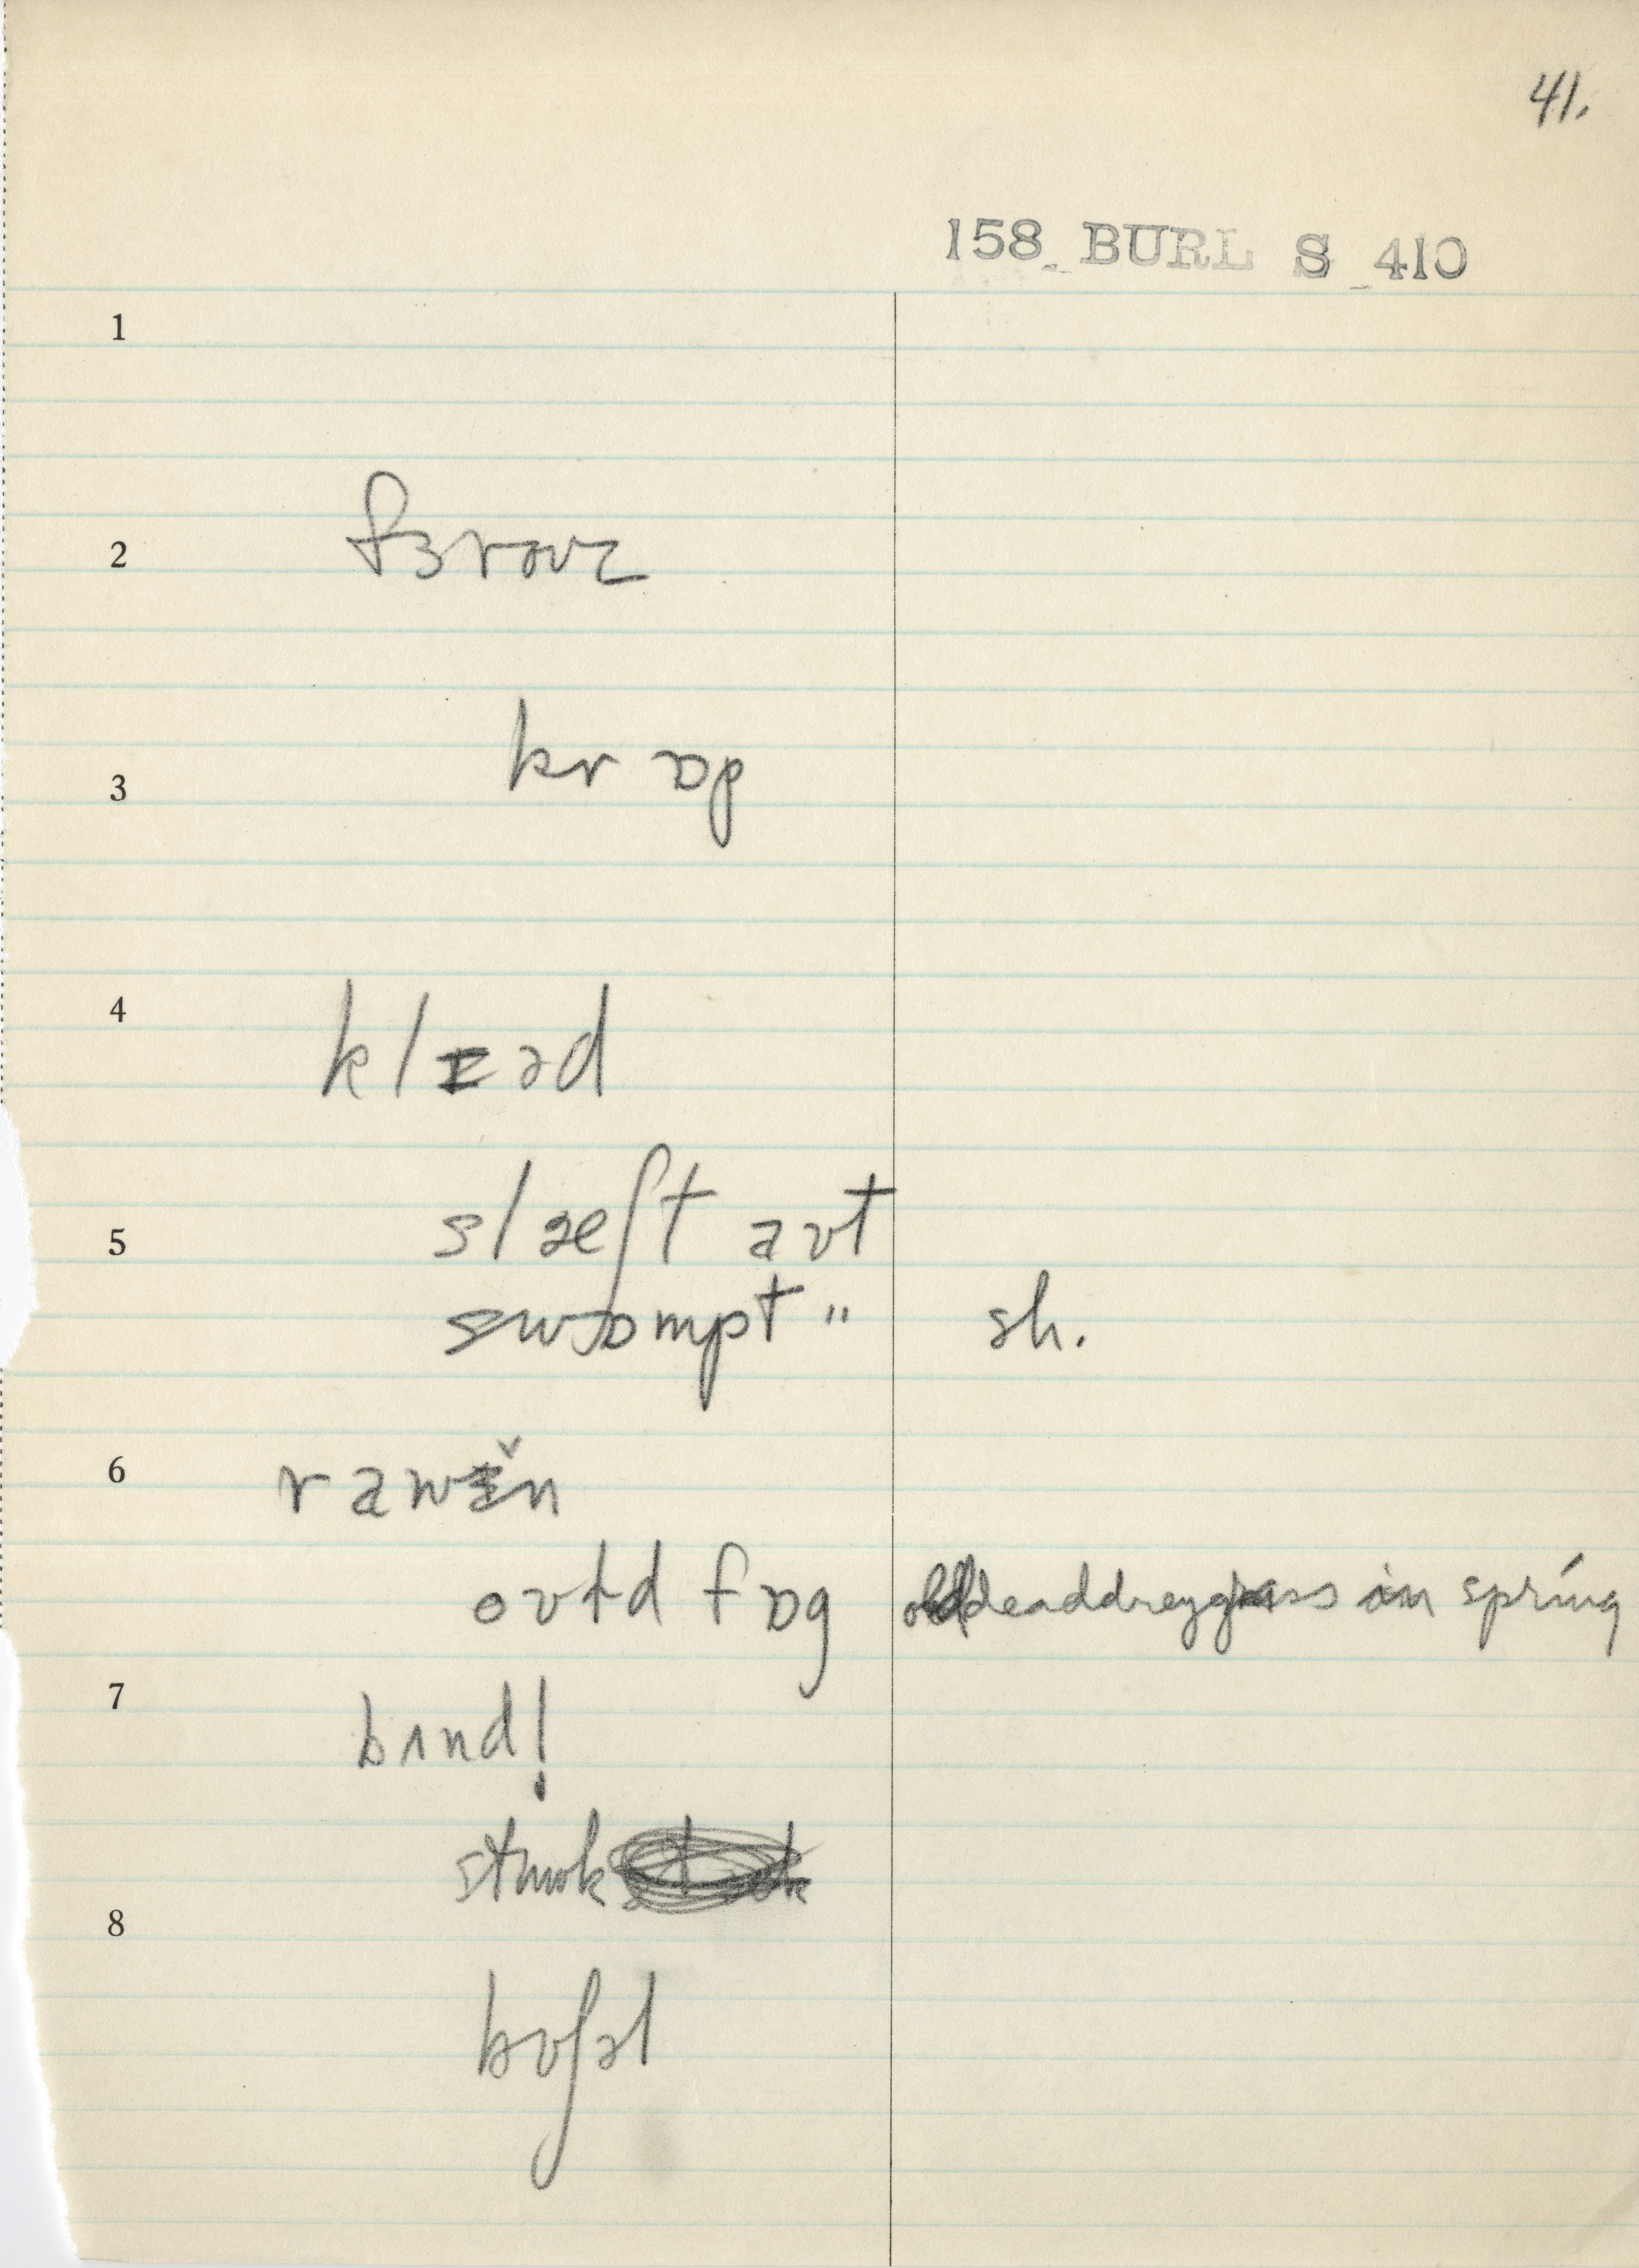 41.
158 BURL S 410
1
2
fɜroʊz
3
krɒp
4
klɪəd
5
slæʃt aʊt
swɒmpt " sh.
6
raʊɪ̌n
oʊtd fɒg old dead drey grass in spring
7
bʌnd!
8
bʊʃəl